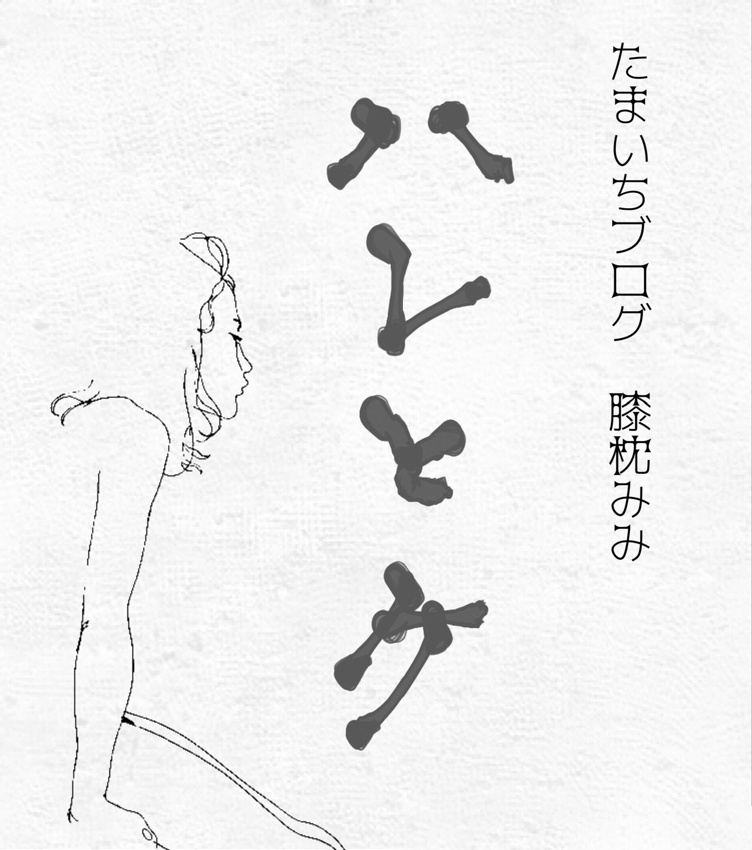 たまいちブログ　膝枕みみ
ハレとケ